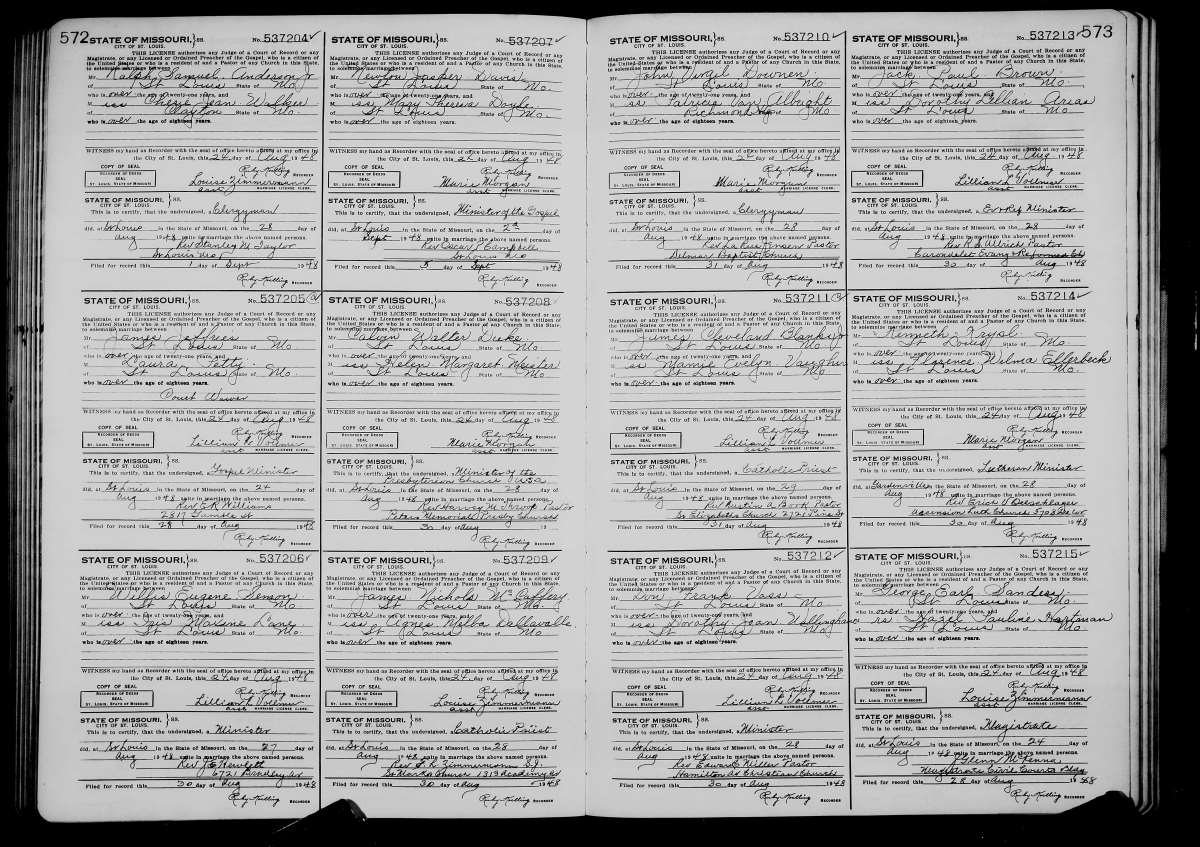 572
STATE OF MISSOURI, } SS. No. 537204 ✓
CITY OF ST. LOUIS.
THIS LICENSE authorizes any Judge of a Court of Record or any
Magistrate, or any Licensed or Ordained Preacher of the Gospel, who is a citizen of
the United States or who is a resident of and a Pastor of any Church in this State,
to solemnize marriage between
Mr Ralph Samuel Anderson Jr
of St Louis State of Mo.
who is over the age of twenty-one years, and
Miss Jean Walker
of Clayton Mo.
who is over the age of eighteen years.
WITNESS my hand as Recorder with the seal of office hereto affixed at my office in
the City of St. Louis, this 24 day of Aug 1948
COPY OF SEAL
RECORDER OF DEEDS
SEAL
ST. LOUIS, STATE OF MISSOURI
RECORDER
Louise Zimmermann
asst MARRIAGE LICENSE CLERK.
STATE OF MISSOURI, } SS.
CITY OF ST. LOUIS.
This is to certify, that the undersigned, a Clergyman
did, at St Louis in the State of Missouri, on the 28 day of
Aug 1948 unite in marriage the above named persons.
Rev Stanley M Taylor
St Louis Mo
Filed for record this 1 day of Sept 1948
RECORDER
STATE OF MISSOURI, } SS. No. 537205
CITY OF ST. LOUIS.
THIS LICENSE authorizes any Judge of a Court of Record or any
Magistrate, or any Licensed or Ordained Preacher of the Gospel, who is a citizen of
the United States or who is a resident of and a Pastor of any Church in this State,
to solemnize marriage between
James Jeffries
of St Louis Mo
who is over the age of twenty-one years, and
Laura Petty
of St Louis State of Mo.
who is over the age of eighteen years.
Court Waiver
WITNESS my hand as Recorder with the seal of office hereto affixed at my office in
the City of St. Louis, this 24 day of Aug 1948
COPY OF SEAL
RECORDER OF DEEDS
SEAL
ST. LOUIS, STATE OF MISSOURI
RECORDER
asst MARRIAGE LICENSE CLERK.
STATE OF MISSOURI, } SS.
CITY OF ST. LOUIS.
This is to certify, that the undersigned, a Gospel Minister
did, at St Louis in the State of Missouri, on the 24 day of
Aug 1948 unite in marriage the above named persons.
Rev E R Williams
Filed for record this 28 day of Aug 1948
RECORDER
STATE OF MISSOURI, } SS. No. 537206 ✓
CITY OF ST. LOUIS.
THIS LICENSE authorizes any Judge of a Court of Record or any
Magistrate, or any Licensed or Ordained Preacher of the Gospel, who is a citizen of
the United States or who is a resident of and a Pastor of any Church in this State,
to solemnize marriage between
Mr Willis Eugene
of St Louis State of Mo.
who is over the age of twenty-one years, and
Miss Iris Maxine Lane
of St Louis State of Mo.
who is over the age of eighteen years.
WITNESS my hand as Recorder with the seal of office hereto affixed at my office in
the City of St. Louis, this 24 day of Aug 1948
COPY OF SEAL
RECORDER OF DEEDS
SEAL
ST. LOUIS, STATE OF MISSOURI
RECORDER
Lillian L Vollmer
asst MARRIAGE LICENSE CLERK.
STATE OF MISSOURI, } SS.
CITY OF ST. LOUIS.
This is to certify, that the undersigned, a Minister
did, at St Louis in the State of Missouri, on the 27 day of
Aug 1948 unite in marriage the above named persons.
Filed for record this 30 day of Aug 1948
RECORDER
STATE OF MISSOURI, } SS. No. 537207 ✓
CITY OF ST. LOUIS.
THIS LICENSE authorizes any Judge of a Court of Record or any
Magistrate, or any Licensed or Ordained Preacher of the Gospel, who is a citizen of
the United States or who is a resident of and a Pastor of any Church in this State,
to solemnize marriage between
Mr Newton Jasper Davis
of St Louis State of Mo.
who is over the age of twenty-one years, and
Miss Mary Theresa Doyle
of St Louis State of Mo.
who is over the age of eighteen years.
WITNESS my hand as Recorder with the seal of office hereto affixed at my office in
the City of St. Louis, this 24 day of Aug 1948
COPY OF SEAL
RECORDER OF DEEDS
SEAL
ST. LOUIS, STATE OF MISSOURI
RECORDER
Marie Morgan
asst MARRIAGE LICENSE CLERK.
STATE OF MISSOURI, } SS.
CITY OF ST. LOUIS.
This is to certify, that the undersigned, Minister of the Gospel
did, at St Louis in the State of Missouri, on the day of
Sept 1948 unite in marriage the above named persons.
Rev Oscar Campbell
St Louis Mo
Filed for record this 5 day of Sept 1948
RECORDER
STATE OF MISSOURI, } SS. No. 537208
CITY OF ST. LOUIS.
THIS LICENSE authorizes any Judge of a Court of Record or any
Magistrate, or any Licensed or Ordained Preacher of the Gospel, who is a citizen of
the United States or who is a resident of and a Pastor of any Church in this State,
to solemnize marriage between
Calvin Walter
of St Louis Mo.
who is over the age of twenty-one years, and
Miss Helen Margaret Meister
of St Louis State of Mo.
who is over the age of eighteen years.
WITNESS my hand as Recorder with the seal of office hereto affixed at my office in
the City of St. Louis, this 24 day of Aug 1948
COPY OF SEAL
RECORDER OF DEEDS
SEAL
ST. LOUIS, STATE OF MISSOURI
RECORDER
Marie Morgan
asst MARRIAGE LICENSE CLERK.
STATE OF MISSOURI, } SS.
CITY OF ST. LOUIS.
This is to certify, that the undersigned, Minister of the
Presbyterian Church U.S.A.
did, at St Louis in the State of Missouri, on the 28 day of
Aug 1948 unite in marriage the above named persons.
Rev Harvey M Throop Pastor
Peters Memorial Presby Church
Filed for record this 30 day of Aug
RECORDER
STATE OF MISSOURI, } SS. No. 537209 ✓
CITY OF ST. LOUIS.
THIS LICENSE authorizes any Judge of a Court of Record or any
Magistrate, or any Licensed or Ordained Preacher of the Gospel, who is a citizen of
the United States or who is a resident of and a Pastor of any Church in this State,
to solemnize marriage between
Mr James Nichols McCaffery
of St Louis State of Mo.
who is over the age of twenty-one years, and
Miss Agnes Melba Dallavalle
of St Louis State of Mo.
who is over the age of eighteen years.
WITNESS my hand as Recorder with the seal of office hereto affixed at my office in
the City of St. Louis, this 24 day of Aug 1948
COPY OF SEAL
RECORDER OF DEEDS
SEAL
ST. LOUIS, STATE OF MISSOURI
RECORDER
Louise Zimmermann
asst MARRIAGE LICENSE CLERK.
STATE OF MISSOURI, } SS.
CITY OF ST. LOUIS.
This is to certify, that the undersigned, a Catholic Priest
did, at St Louis in the State of Missouri, on the 28 day of
Aug 1948 unite in marriage the above named persons.
Rev F. R. Zimmermann S.J.
St Marks Church 1313 Academy Av
Filed for record this 30 day of Aug 1948
RECORDER
573
STATE OF MISSOURI, } SS. No. 537210 ✓
CITY OF ST. LOUIS.
THIS LICENSE authorizes any Judge of a Court of Record or any
Magistrate, or any Licensed or Ordained Preacher of the Gospel, who is a citizen of
the United States or who is a resident of and a Pastor of any Church in this State,
to solemnize marriage between
Mr John Virgil Downen
of St Louis State of Mo.
who is over the age of twenty-one years, and
Miss Patricia Van
of Richmond Hgts Mo
who is over the age of eighteen years.
WITNESS my hand as Recorder with the seal of office hereto affixed at my office in
the City of St. Louis, this 24 day of Aug 1948
COPY OF SEAL
RECORDER OF DEEDS
SEAL
ST. LOUIS, STATE OF MISSOURI
RECORDER
Marie Morgan
asst MARRIAGE LICENSE CLERK.
STATE OF MISSOURI, } SS.
CITY OF ST. LOUIS.
This is to certify, that the undersigned, a Clergyman
did, at St Louis in the State of Missouri, on the 28 day of
Aug 1948 unite in marriage the above named persons.
Rev LaRue Jensen Pastor
Delmar Baptist Church
Filed for record this 31 day of Aug 1948
RECORDER
STATE OF MISSOURI, } SS. No. 537211
CITY OF ST. LOUIS.
THIS LICENSE authorizes any Judge of a Court of Record or any
Magistrate, or any Licensed or Ordained Preacher of the Gospel, who is a citizen of
the United States or who is a resident of and a Pastor of any Church in this State,
to solemnize marriage between
James Cleveland Blanks Jr
of St Louis Mo
who is over the age of twenty-one years, and
Miss Mamie Evelyn Vaughn
of St Louis State of Mo.
who is over the age of eighteen years.
WITNESS my hand as Recorder with the seal of office hereto affixed at my office in
the City of St. Louis, this 24 day of Aug 1948
COPY OF SEAL
RECORDER OF DEEDS
SEAL
ST. LOUIS, STATE OF MISSOURI
RECORDER
Lillian L Vollmer
asst MARRIAGE LICENSE CLERK.
STATE OF MISSOURI, } SS.
CITY OF ST. LOUIS.
This is to certify, that the undersigned, a Catholic Priest
did, at St Louis in the State of Missouri, on the 29 day of
Aug 1948 unite in marriage the above named persons.
Rev Austin A Bork Pastor
St Elizabeths Church 2721 Pine St
Filed for record this 31 day of Aug 1948
RECORDER
STATE OF MISSOURI, } SS. No. 537212 ✓
CITY OF ST. LOUIS.
THIS LICENSE authorizes any Judge of a Court of Record or any
Magistrate, or any Licensed or Ordained Preacher of the Gospel, who is a citizen of
the United States or who is a resident of and a Pastor of any Church in this State,
to solemnize marriage between
Mr Don Frank Vass
of St Louis State of Mo
who is over the age of twenty-one years, and
Miss Dorothy Jean
of St Louis State of Mo
who is over the age of eighteen years.
WITNESS my hand as Recorder with the seal of office hereto affixed at my office in
the City of St. Louis, this 24 day of Aug 1948
COPY OF SEAL
RECORDER OF DEEDS
SEAL
ST. LOUIS, STATE OF MISSOURI
RECORDER
Lillian L Vollmer
asst MARRIAGE LICENSE CLERK.
STATE OF MISSOURI, } SS.
CITY OF ST. LOUIS.
This is to certify, that the undersigned, a Minister
did, at St Louis in the State of Missouri, on the 28 day of
Aug 1948 unite in marriage the above named persons.
Rev Edward Miller Pastor
Hamilton Av Christian Church
Filed for record this 30 day of Aug 1948
RECORDER
STATE OF MISSOURI, } SS. No. 537213 ✓
CITY OF ST. LOUIS.
THIS LICENSE authorizes any Judge of a Court of Record or any
Magistrate, or any Licensed or Ordained Preacher of the Gospel, who is a citizen of
the United States or who is a resident of and a Pastor of any Church in this State,
to solemnize marriage between
Mr Jack Paul Brown
of St Louis State of Mo.
who is over the age of twenty-one years, and
Miss Dorothy Lillian Arias
of St Louis State of Mo.
who is over the age of eighteen years.
WITNESS my hand as Recorder with the seal of office hereto affixed at my office in
the City of St. Louis, this 24 day of Aug 1948
COPY OF SEAL
RECORDER OF DEEDS
SEAL
ST. LOUIS, STATE OF MISSOURI
RECORDER
Lillian L Vollmer
asst MARRIAGE LICENSE CLERK.
STATE OF MISSOURI, } SS.
CITY OF ST. LOUIS.
This is to certify, that the undersigned, a Ev & Ref Minister
did, at St Louis in the State of Missouri, on the 28 day of
Aug 1948 unite in marriage the above named persons.
Rev R A Ullrich Pastor
Carondelet Evang & Reformed Ch
Filed for record this 30 day of Aug 1948
RECORDER
STATE OF MISSOURI, } SS. No. 537214 ✓
CITY OF ST. LOUIS.
THIS LICENSE authorizes any Judge of a Court of Record or any
Magistrate, or any Licensed or Ordained Preacher of the Gospel, who is a citizen of
the United States or who is a resident of and a Pastor of any Church in this State,
to solemnize marriage between
Kenneth
of St Louis Mo.
who is over the age of twenty-one years, and
Miss Florence Wilma Ellerbeck
of St Louis State of Mo.
who is over the age of eighteen years.
WITNESS my hand as Recorder with the seal of office hereto affixed at my office in
the City of St. Louis, this 24 day of Aug 1948
COPY OF SEAL
RECORDER OF DEEDS
SEAL
ST. LOUIS, STATE OF MISSOURI
RECORDER
Marie Morgan
asst MARRIAGE LICENSE CLERK.
STATE OF MISSOURI, } SS.
CITY OF ST. LOUIS.
This is to certify, that the undersigned, Lutheran Minister
did, at Gardenville in the State of Missouri, on the 28 day of
Aug 1948 unite in marriage the above named persons.
Rev Erich V Oelschlaeger
Ascension Luth Church
Filed for record this 30 day of Aug 1948
RECORDER
STATE OF MISSOURI, } SS. No. 537215 ✓
CITY OF ST. LOUIS.
THIS LICENSE authorizes any Judge of a Court of Record or any
Magistrate, or any Licensed or Ordained Preacher of the Gospel, who is a citizen of
the United States or who is a resident of and a Pastor of any Church in this State,
to solemnize marriage between
Mr George Earl Sanders
of St Louis State of Mo.
who is over the age of twenty-one years, and
Mrs Hazel Pauline Hartman
of St Louis State of Mo.
who is over the age of eighteen years.
WITNESS my hand as Recorder with the seal of office hereto affixed at my office in
the City of St. Louis, this 24 day of Aug 1948
COPY OF SEAL
RECORDER OF DEEDS
SEAL
ST. LOUIS, STATE OF MISSOURI
RECORDER
Louise Zimmermann
asst MARRIAGE LICENSE CLERK.
STATE OF MISSOURI, } SS.
CITY OF ST. LOUIS.
This is to certify, that the undersigned, Magistrate
did, at St Louis in the State of Missouri, on the 24 day of
Aug 1948 unite in marriage the above named persons.
Glenn McKenna
Magistrate Civil Courts Bldg
Filed for record this 28 day of Aug 1948
RECORDER